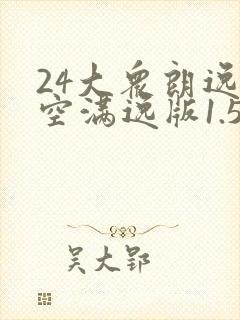 24大众朗逸
空满逸版1.5
吴大郢